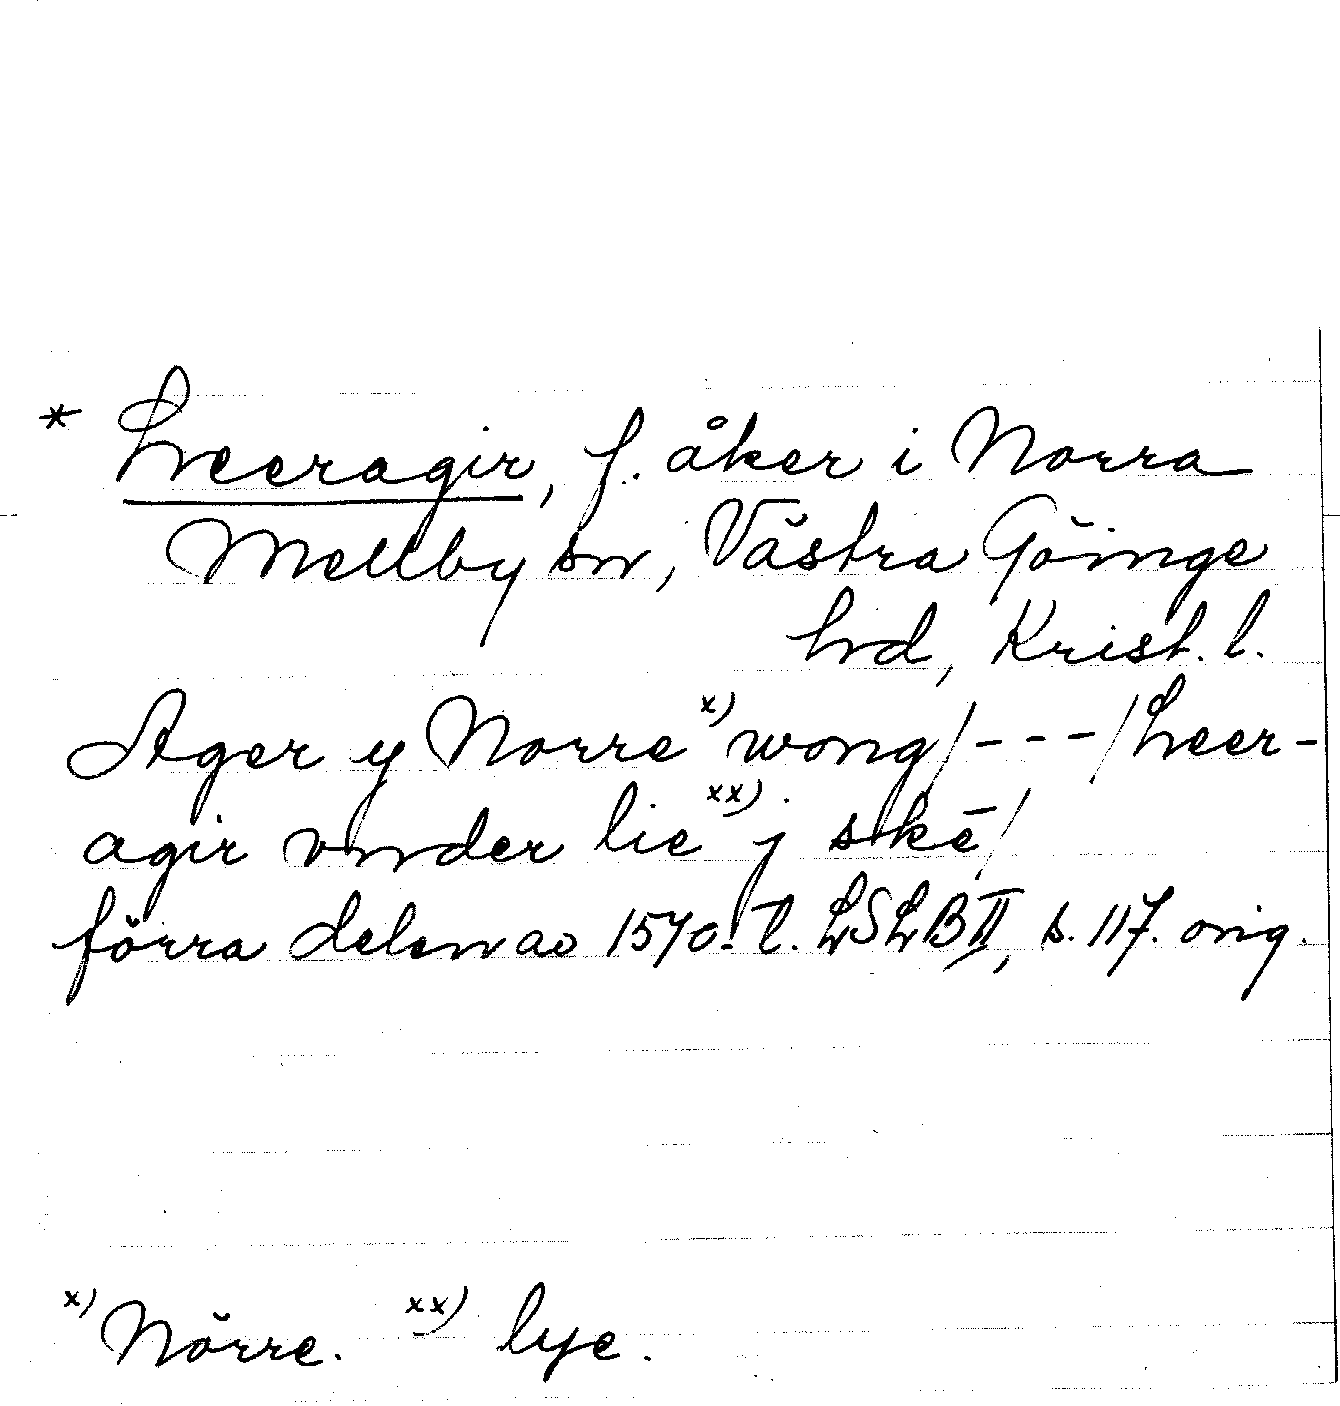 * Leeragir, f. åker i Norra
Mellby sn, Västra Göinge
hd, Krist. l.
Ager y Norre x) wong/---/Leer-
agir vnder lie xx) j skē/
förra delen av 1570-t. LSLB II, s. 117. orig.
x) Nörre. xx) lye.